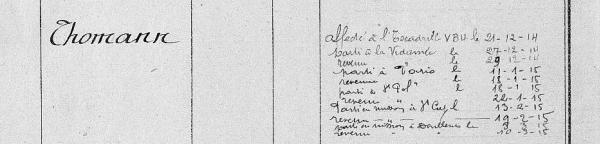 Thomann
affecté à l'Escadrille VB 4 le 21-12-14
parti à la Vidamée le 27-12-14
revenu le 29-12-14
parti à Paris le 11-1-15
revenu le 18-1-15
parti à St Pol le 18-1-15
revenu " 22-1-15
Parti en mission à St Cyr le 13-2-15
revenu " 19-2-15
parti en mission à Doullens le 9-3-15
revenu " 10-3-15